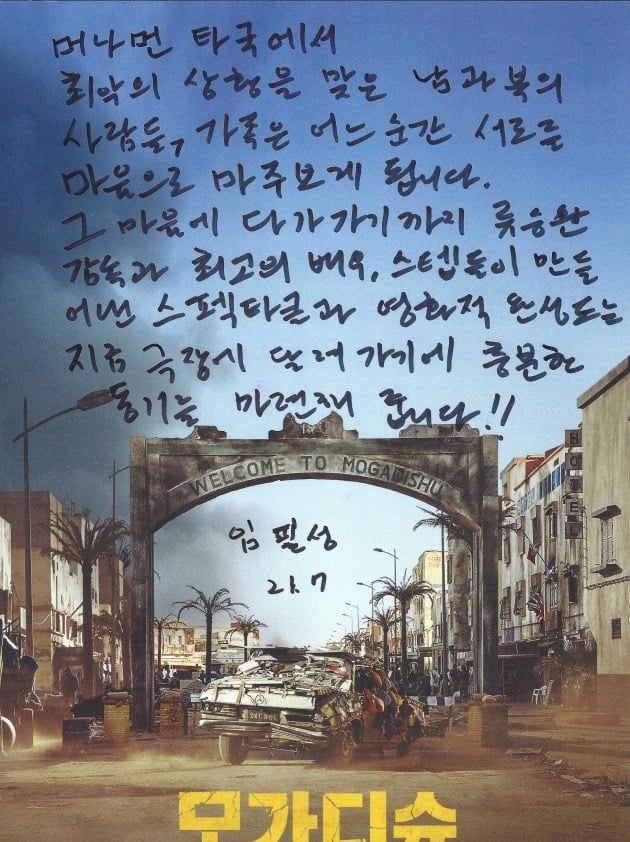 머나먼 타국에서
최악의 상황을 맞은 남과 북의
사람들, 가족은 어느 순간 서로를
마음으로 마주보게 됩니다.
그 마음에 다가가기까지 류승완
감독과 최고의 배우, 스텝들이 만들
어낸 스펙타클과 영화적 완성도는
지금 극장에 달려가기에 충분한
동기를 마련해 줍니다!!
WELCOME TO MOGADISHU
HOTEL
임필성
21.7
모가디슈